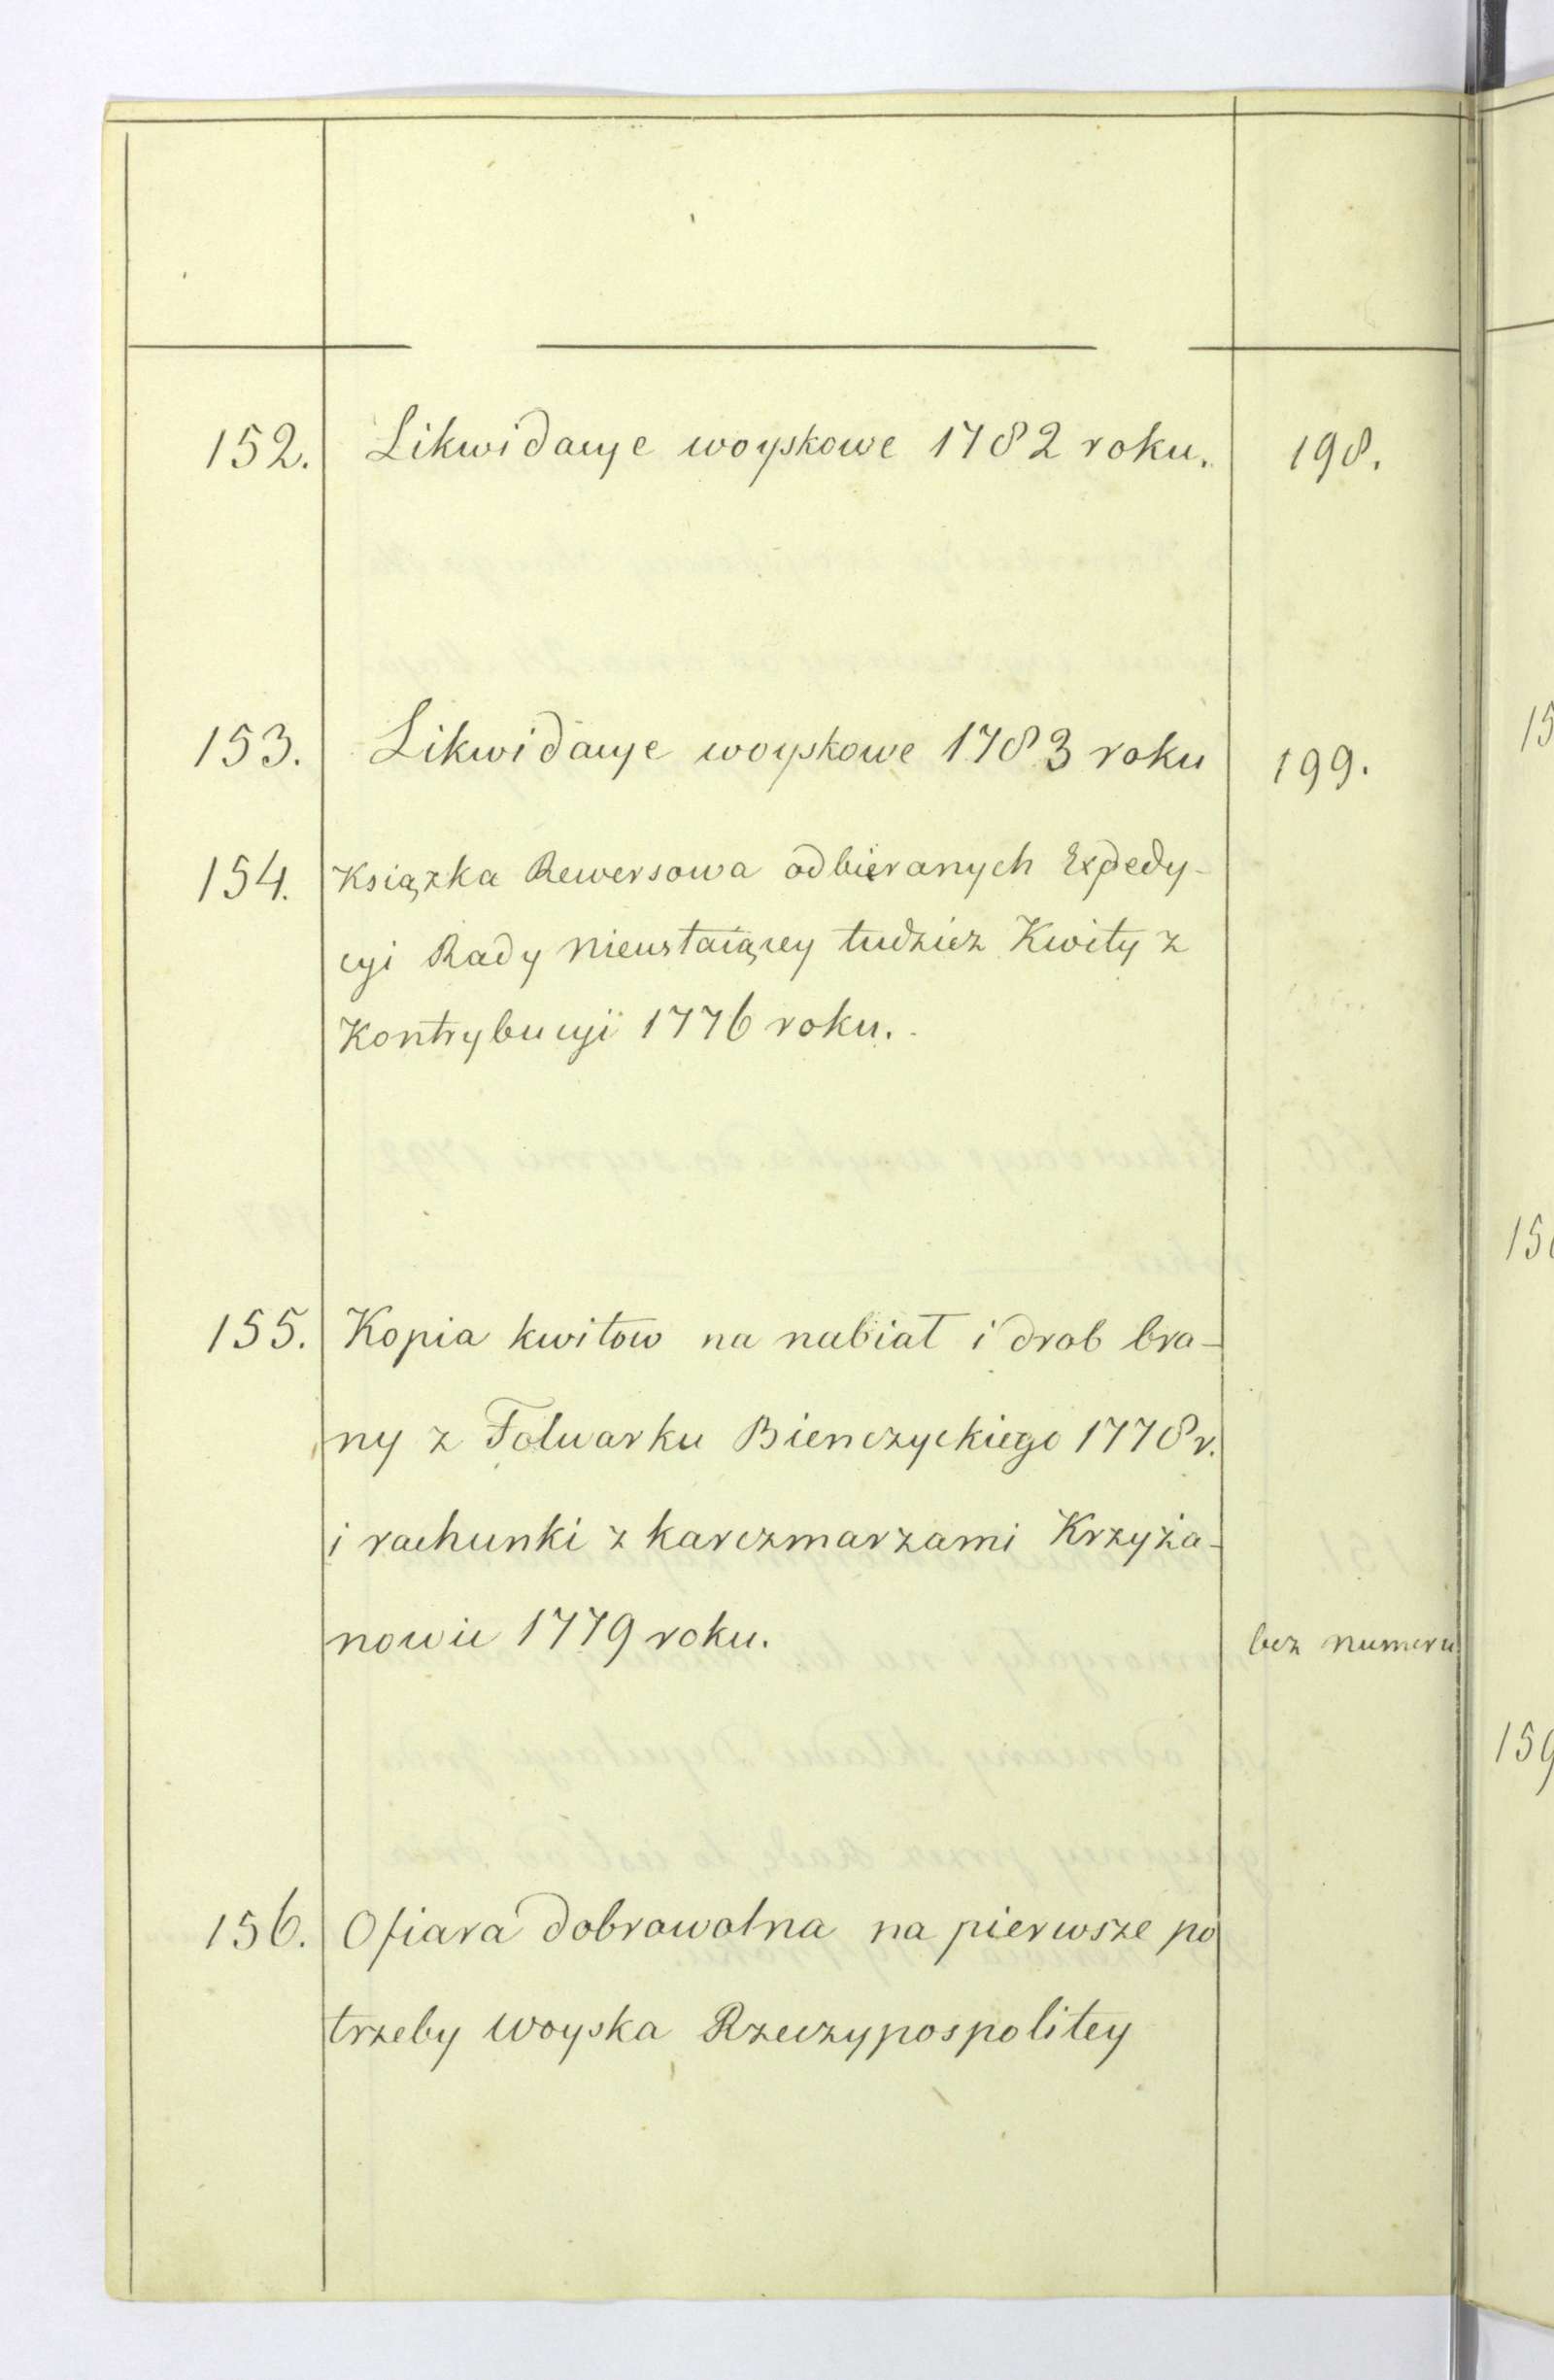 152. Likwidacye woyskowe 1782 roku. 198.
153. Likwidacye woyskowe 1783 roku 199.
154. Książka Rewersowa odbieranych Expedy-
cyi Rady Nieustaiącey tudzież Kwity z
Kontrybucyi 1776 roku.
155. Kopia kwitow na nabiał i drob bra-
ny z Folwarku Bienczyckiego 1778 r.
i rachunki z karczmarzami Krzyża-
nowic 1779 roku. bez numeru
156. Ofiara dobrowolna na pierwsze po
trzeby Woyska Rzeczypospolitey